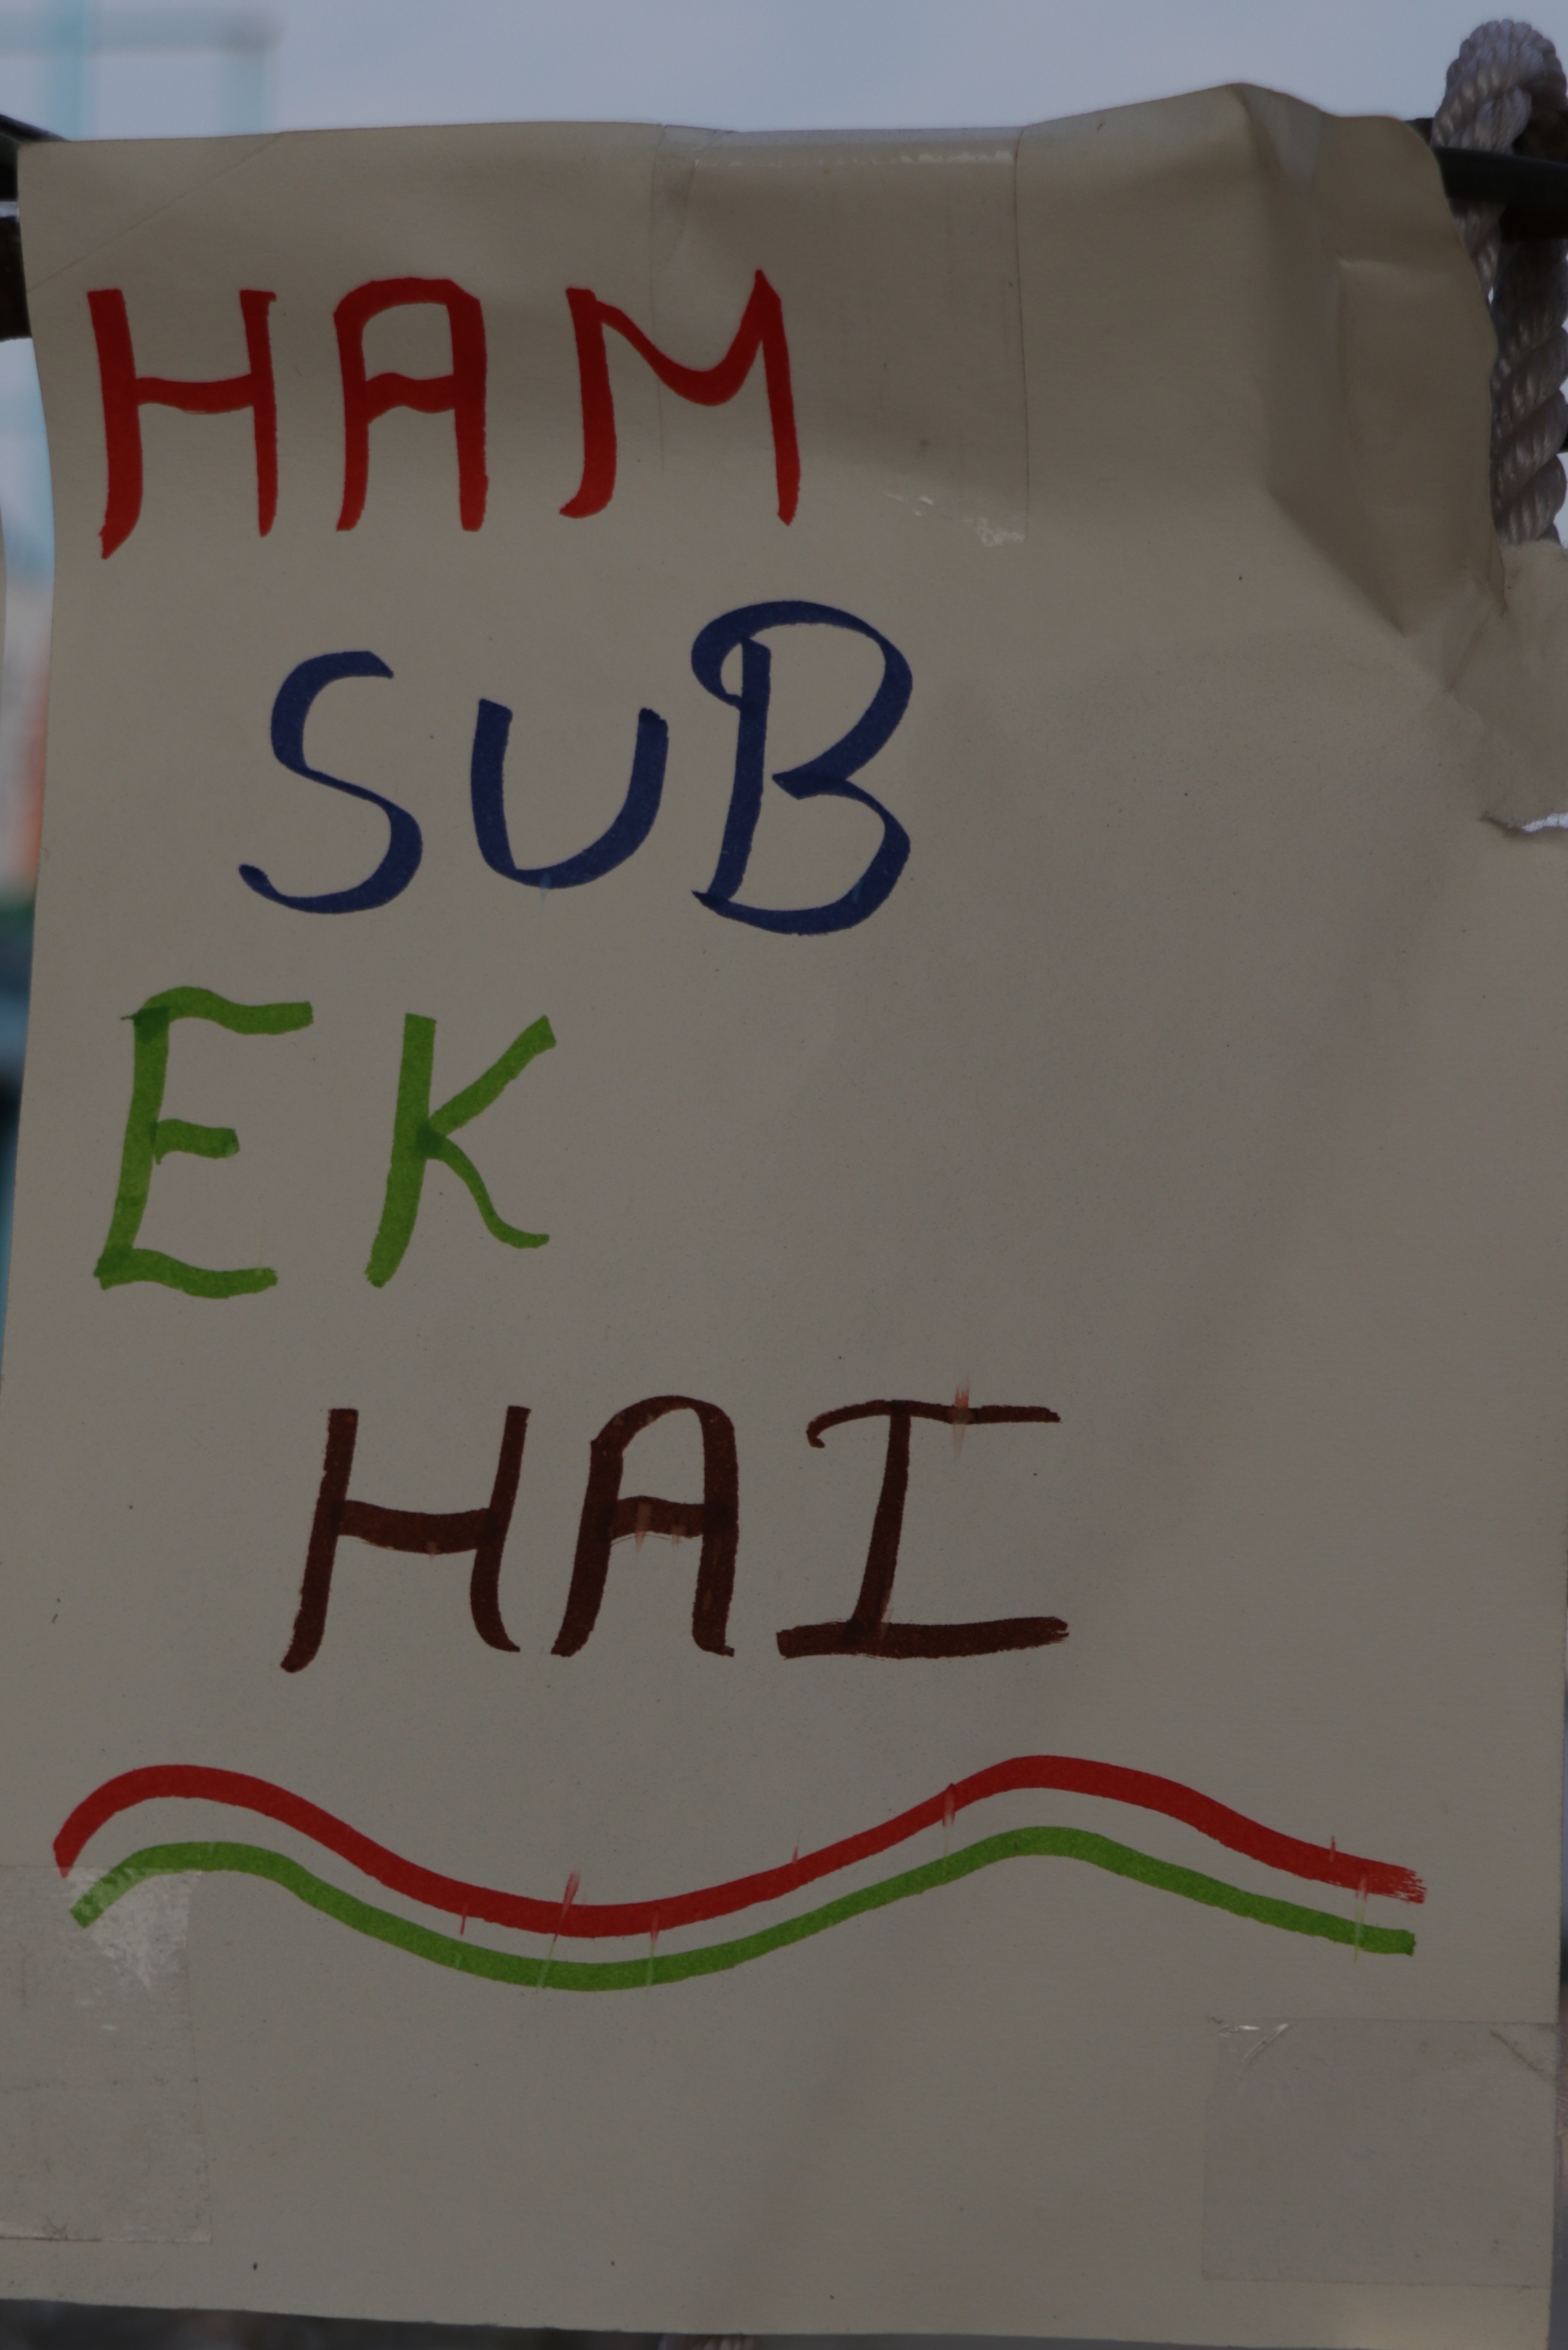 HAM
SUB
EK
HAI